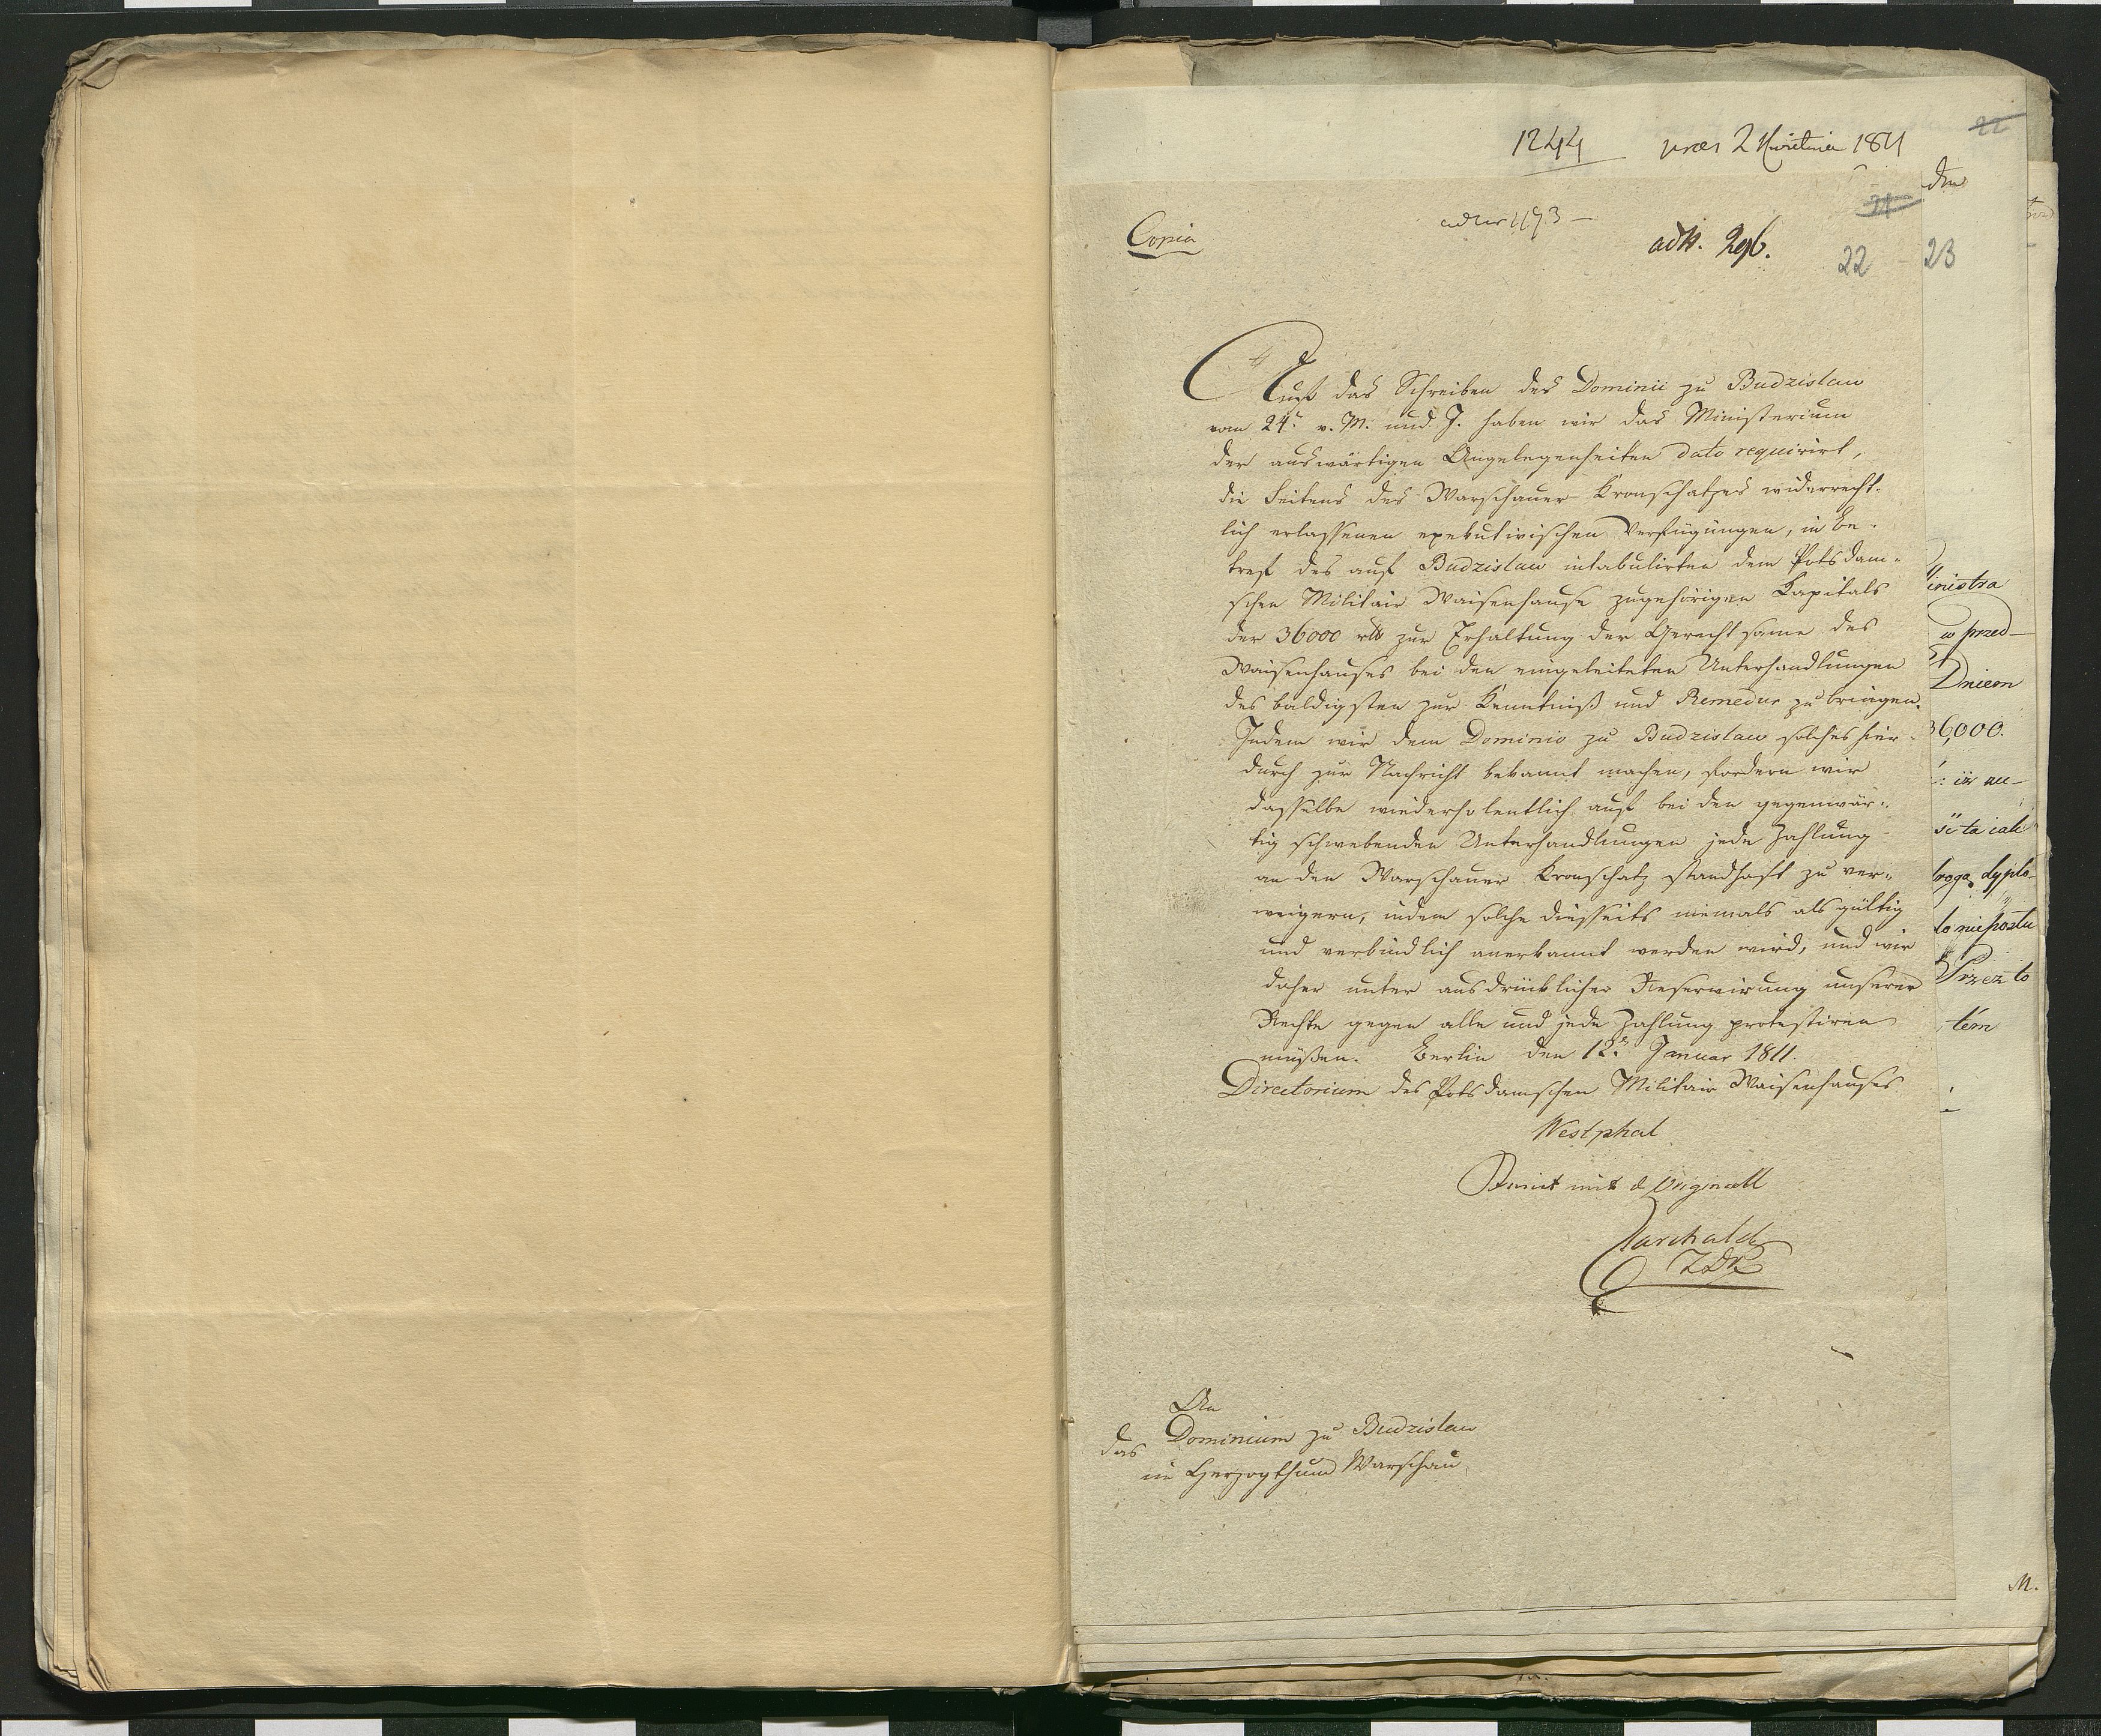 1244 præs 2 Kwietnia 1811
22
den
21
Copia
ad Nr 1193 –
ad N. 296.
22 23
Auf das Schreiben des Dominii zu Budzislaw
vom 24t v. M. und J. haben wir das Ministerium
der auswärtigen Angelegenheiten dato requirirt,
die Seitens des Warschauer Kronschatzes widerrecht-
lich erlassenen exekutivischen Verfügungen, in Be-
tref des auf Budzislaw intabulirten dem Potsdam-
schen Militair Waisenhause zugehörigen Kapitals
der 36000 rtl zur Erhaltung der Gerechtsame des
Waisenhauses bei den eingeleiteten Unterhandlungen
des baldigsten zur Kenntniß und Remedur zu bringen.
Indem wir dem Dominio zu Budzislaw solches hier-
durch zur Nachricht bekannt machen, fordern wir
dasselbe wiederholentlich auf bei den gegenwär-
tig schwebenden Unterhandlungen jede Zahlung
an den Warschauer Kronschatz standhaft zu ver-
weigern, indem solche diesseits niemals als gültig
und verbindlich anerkannt werden wird, und wir
daher unter ausdrücklicher Reservirung unserer
Rechte gegen alle und jede Zahlung protestiren
müßen. Berlin den 12t Januar 1811.
Directorium des Potsdamschen Militair Waisenhauses
Westphal
mit d Originall
An
das Dominium zu Budzislaw
im Herzogthum Warschau
inistra
w przed–
Dniem
36,000.
: iż au–
si ta iak
rogą dyplo–
Przez to
tém
M.